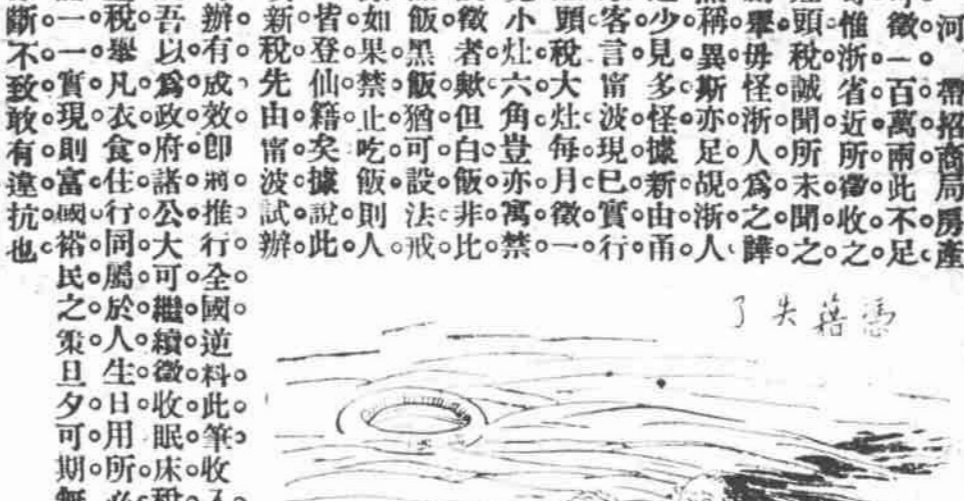 河 招商局房產
徵一百萬兩此不足
惟浙省近所徵收之
頭稅誠聞所未聞之
舉毋怪浙人爲之譁
稱異斯亦足覘浙人
少見多怪據新由甬
客言甯波現已實行
頭稅大灶每月徵一
小灶六角豈亦寓禁
徵者歟但白飯非比
飯黑飯猶可設法戒
如果禁止吃飯則人
皆登仙籍矣據說此
新稅先由甯波試辦
辦有成效卽將推行全國逆料此筆收入
吾以爲政府諸公大可繼續徵收眠床稅
稅舉凡衣食住行同屬於人生日用所必
一一實現則富國裕民之策旦夕可期無
斷不致敢有違抗也
憑藉失了